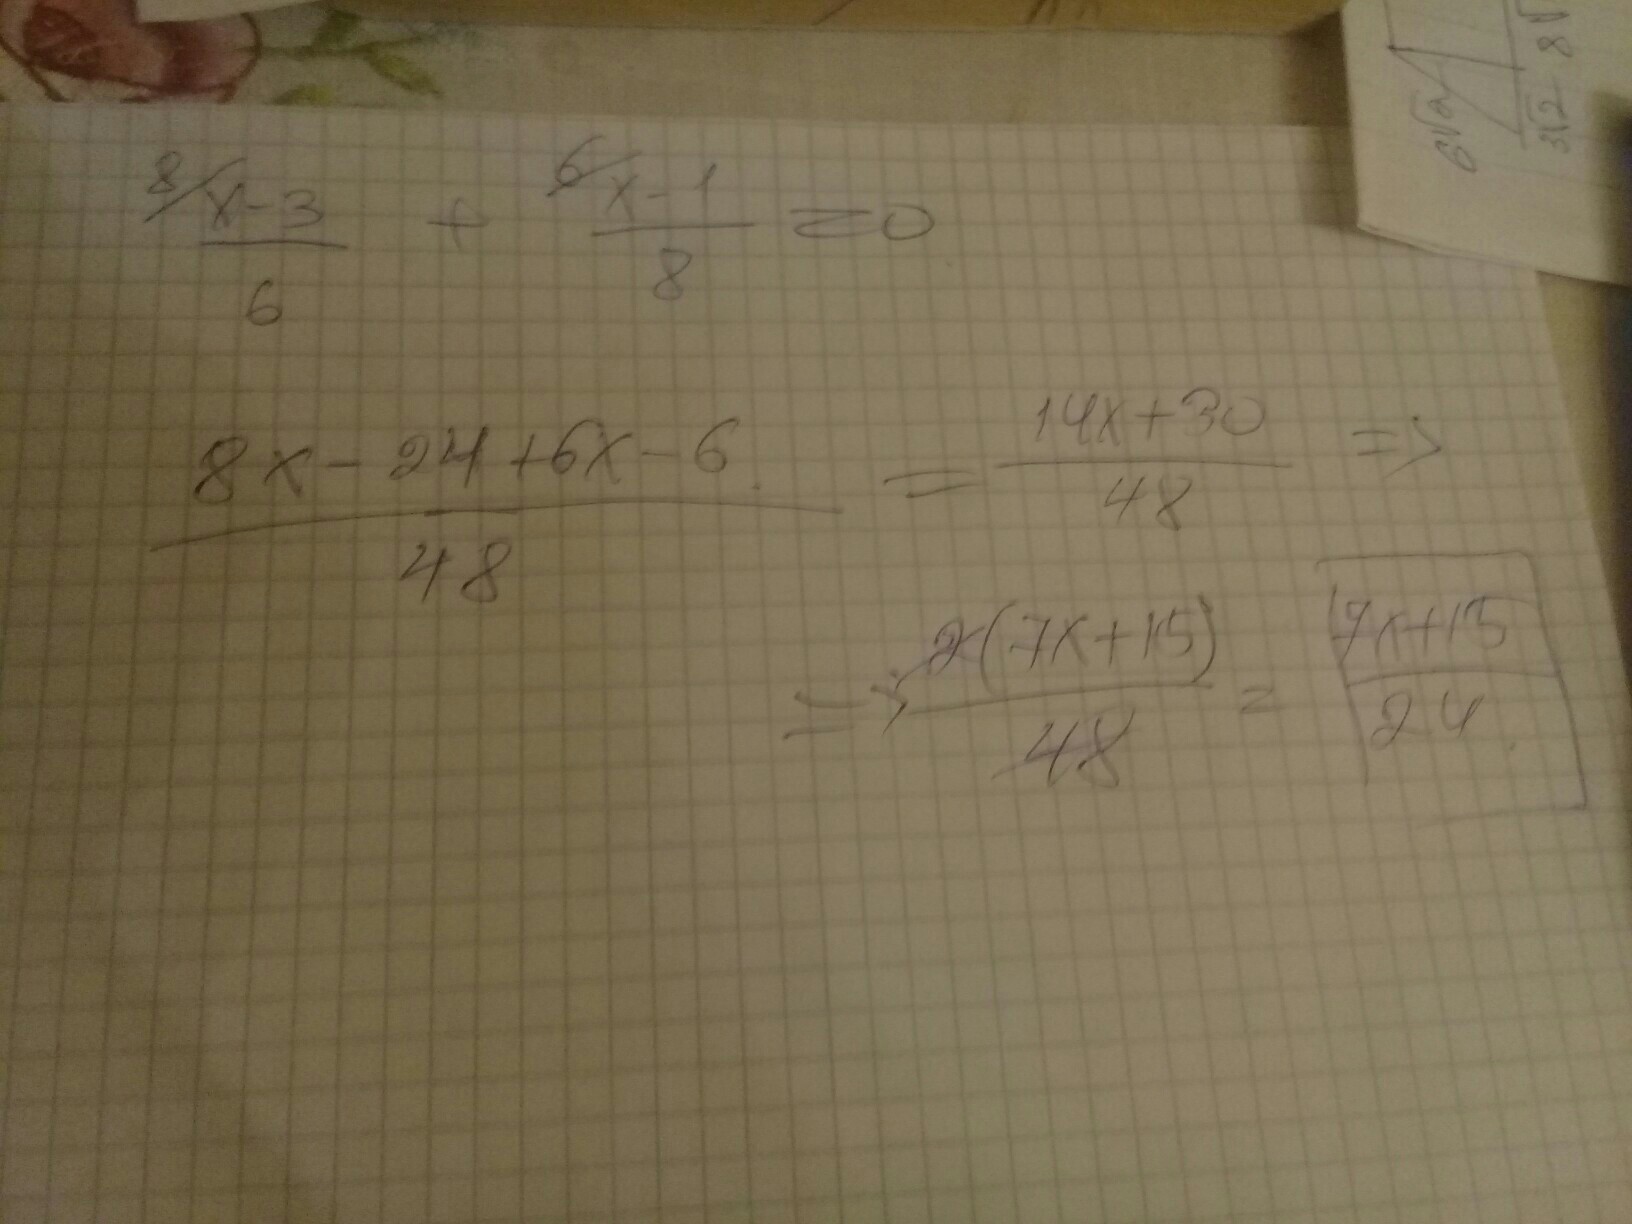 8/ x-3 / 6 + 6/ x-1 / 8 = 0
8x - 24 + 6x - 6 / 48 = 14x+30 / 48 =>
=> 2(7x+15) / 48 = 7x+15 / 24
6√2
3√2 8√